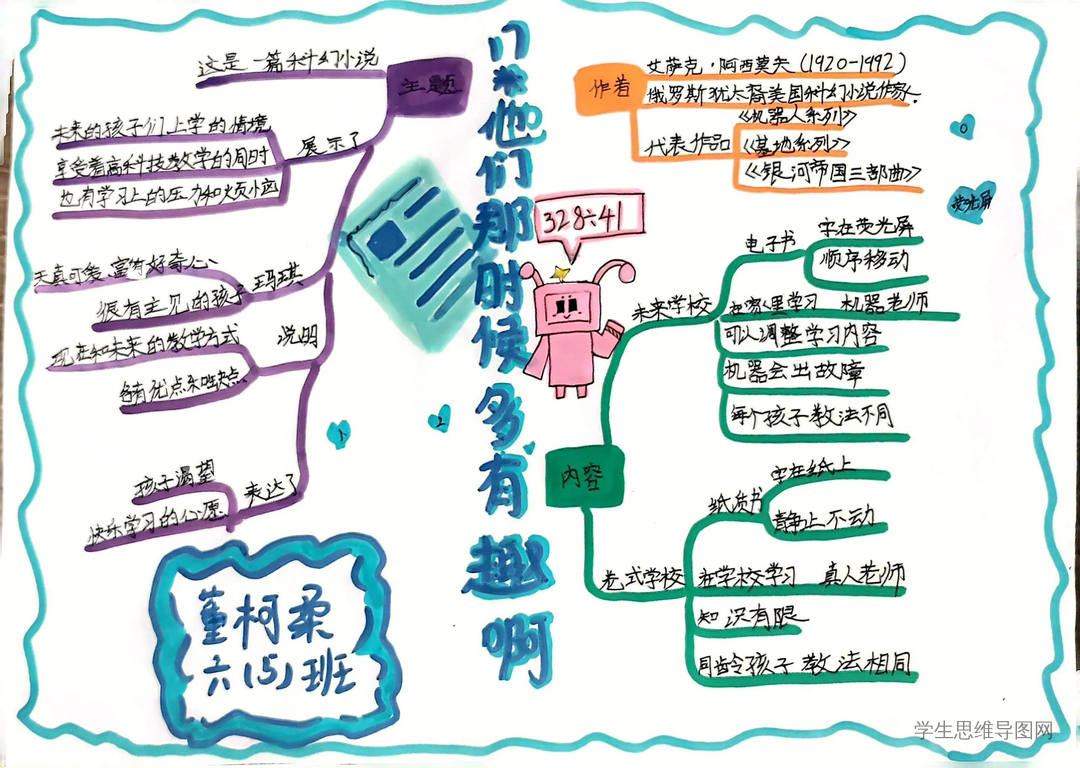 他们那时候多有趣啊
主题
这是一篇科幻小说
展示了
未来的孩子们上学的情境
享受着高科技教学的同时
也有学习上的压力和烦恼
玛琪
天真可爱、富有好奇心、
很有主见的孩子
说明
现在和未来的教学方式
各有优点和缺点
表达了
孩子渴望
快乐学习的心愿
董柯柔
六(5)班
作者
艾萨克·阿西莫夫(1920-1992)
俄罗斯犹太裔美国科幻小说作家.
代表作品
《机器人系列》
《基地系列》
《银河帝国三部曲》
荧光屏
328÷41
内容
未来学校
电子书
字在荧光屏
顺序移动
在家里学习 机器老师
可以调整学习内容
机器会出故障
每个孩子教法不同
老式学校
纸质书
字在纸上
静止不动
在学校学习 真人老师
知识有限
同龄孩子教法相同
学生思维导图网